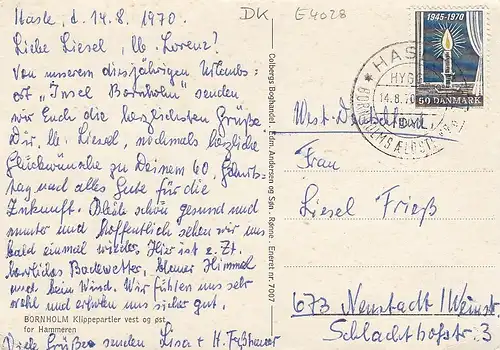 Hasle, d. 14.8.1970.
Liebe Liesel, lb. Lorenz!
Von unserem diesjährigen Urlaubs-
ort "Insel Bornholm" senden
wir Euch die herzlichsten Grüße
Dir, lb. Liesel, nochmals herzliche
Glückwünsche zu Deinem 60. Geburts-
tag und alles Gute für die
Zukunft. Bleibe schön gesund und
munter und hoffentlich sehen wir uns
bald einmal wieder. Hier ist z. Zt.
herrliches Badewetter, blauer Himmel
und kein Wind. Wir fühlen uns sehr
wohl und erholen uns sicher gut.
BORNHOLM Klippepartier vest og øst
for Hammeren
Viele Grüße senden Lisa + H.
Colbergs Boghandel - Edm. Andersen og Søn - Rønne - Eneret nr. 7007
DK
E4028
1945-1970
60 DANMARK
HASLE
HYGG
14.8.70
BORNHOLMS ÆLDSTE
West-Deutschland
Frau
Liesel Frieß
673 Neustadt / Weinstr.
Schlachthofstr. 3